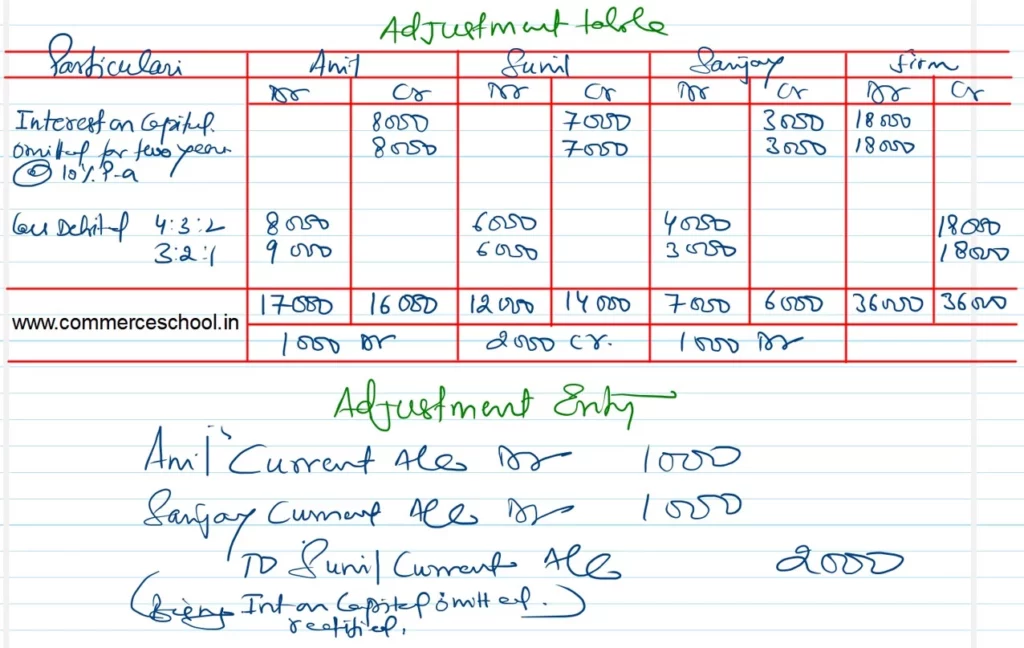 Adjustment table
Particulars Anil Sunil Sanjay firm
Dr Cr Dr Cr Dr Cr Dr Cr
Interest on Capital 8000 7000 3000 18000
omitted for two years 8000 7000 3000 18000
@ 10% P.a
Loss Debited 4:3:2 8000 6000 4000 18000
3:2:1 9000 6000 3000 18000
17000 16000 12000 14000 7000 6000 36000 36000
www.commerceschool.in
1000 Dr 2000 Cr. 1000 Dr
Adjustment Entry
Anil's Current A/c Dr 1000
Sanjay Current A/c Dr 1000
TO Sunil Current A/c 2000
(Being Int on Capital omitted.)
rectified.